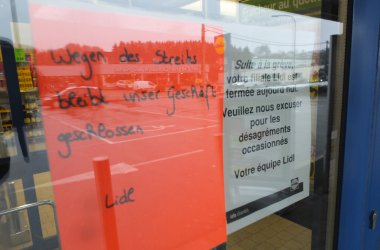 Wegen des Streiks
bleibt unser Geschäft
geschlossen
Lidl
Suite à la grève,
votre filiale Lidl est
fermée aujourd'hui.
Veuillez nous excuser
pour les
désagréments
occasionnés
Votre équipe Lidl